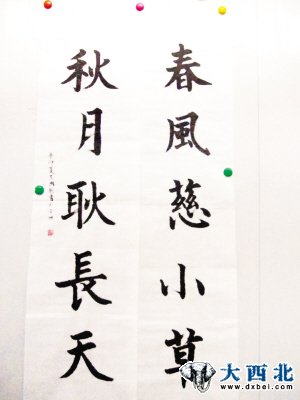 春風慈小草
秋月耿長天
大西北
www.dxbei.com